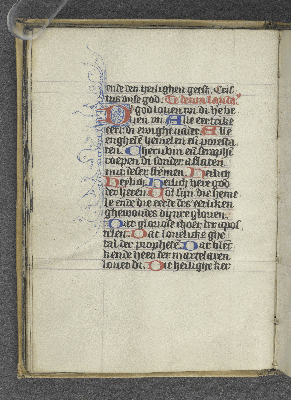 ende den heilighen gheest. Cris
tus onse god. Te deum lauda
God louen wi di he he
ren wi Alle eertrike
eert di ewighe vader Alle
enghele hemelen en potesta
ten. Cherubin en seraphi
roepen di sonder aflaten
mit deser stemmen. Heilich
Heylich. Heilich here god
der heren Vol sijn die heme
le ende die eerde des
dijnre glorien.
Die gloriose choer der apos
telen. Dat louelike ghe
tal der propheten. Dat blec
kende heer der martelaren
louen di. Die heilighe ker